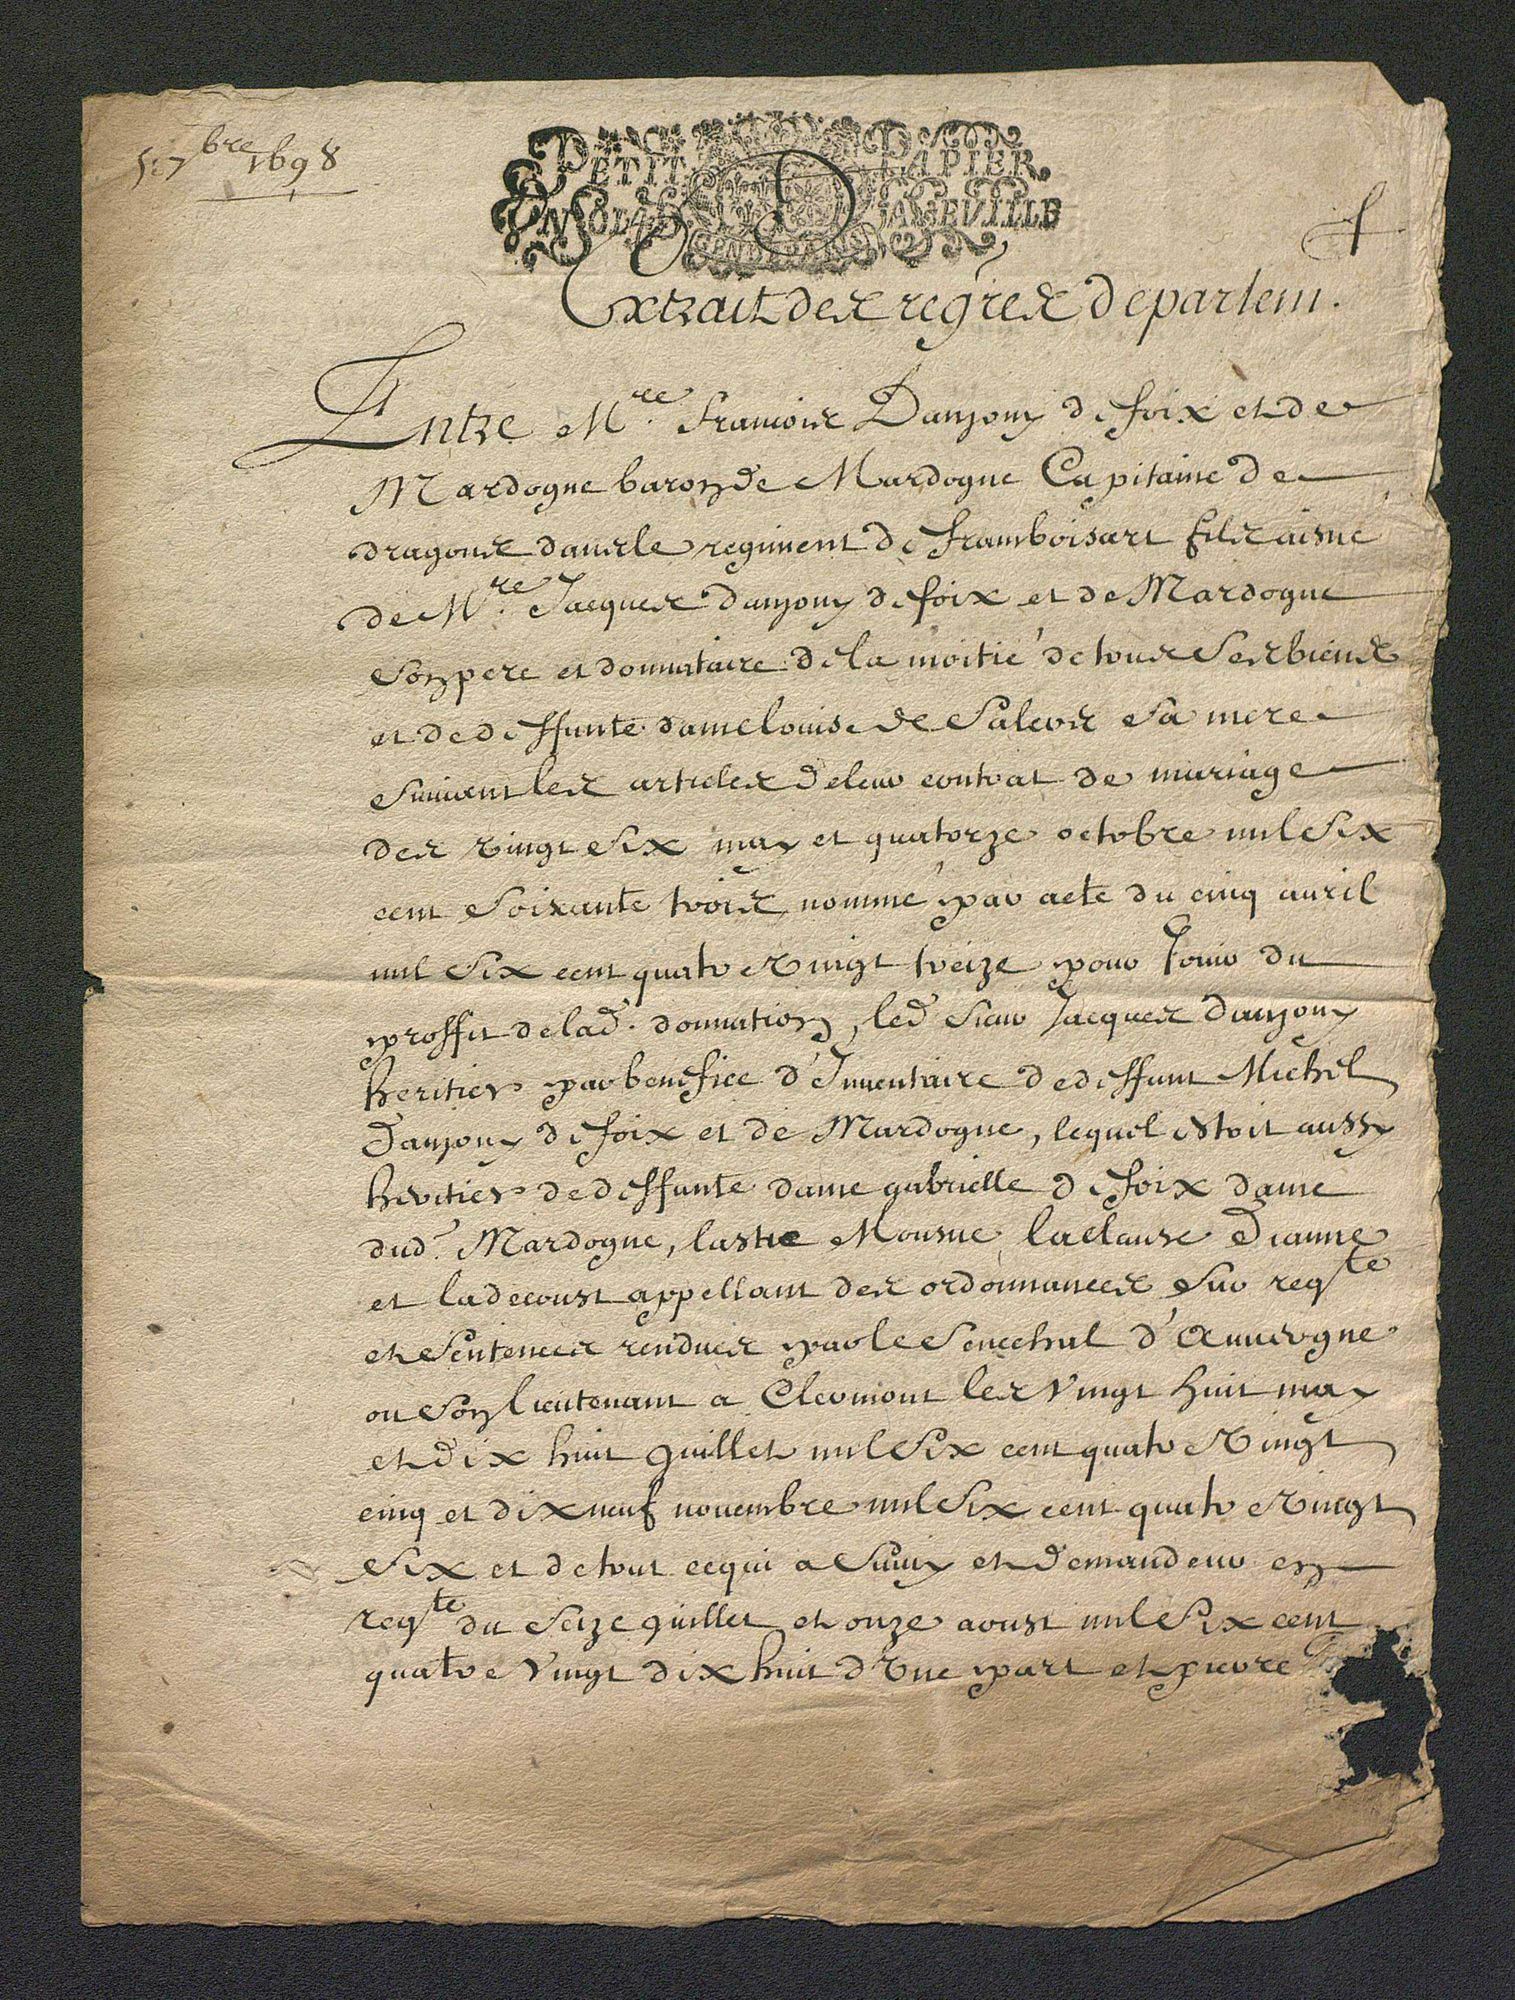 5. 7bre 1698
PETIT PAPIER
UN SOL LA FEUILLE
GEN DE PARIS
Extrait des regres de parlem.
Entre Mre. Francois Danjony de foix et de
Mardogne baron de Mardogne Capitaine de
dragons dans le regiment de framboisart fils aisné
de Mre. Jacques danjony de foix et de Mardogne
son pere et donnataire de la moitié de tous ses biens
et de deffunte dame louise de Salers sa mere
suivant les articles de leur contrat de mariage
des vingt six may et quatorze octobre mil six
cent soixante trois nommé par acte du cinq auril
mil six cent quatre vingt treize pour Jouir du
proffit de lad. donnation, led sieur Jacques danjony
heritier par benefice d'Inuentaire de deffunt Michel
Danjony de foix et de Mardogne, lequel estoit aussy
heritier de deffunte dame gabrielle de foix dame
dud. Mardogne, lastic Mousne laclause Dianne
et ladecoust appellant des ordonnances sur reqte
et sentences rendues par le senechal d'Auuergne
ou son lieutenant a Clermont les vingt huit may
et dix huit juillet mil six cent quatre vingt
cinq et dix neuf nouembre mil six cent quatre vingt
six et de tout ce qui a suiuy et demandeur en
reqte du seize juillet et onze aoust mil six cent
quatre vingt dix huit d'vne part et pierre